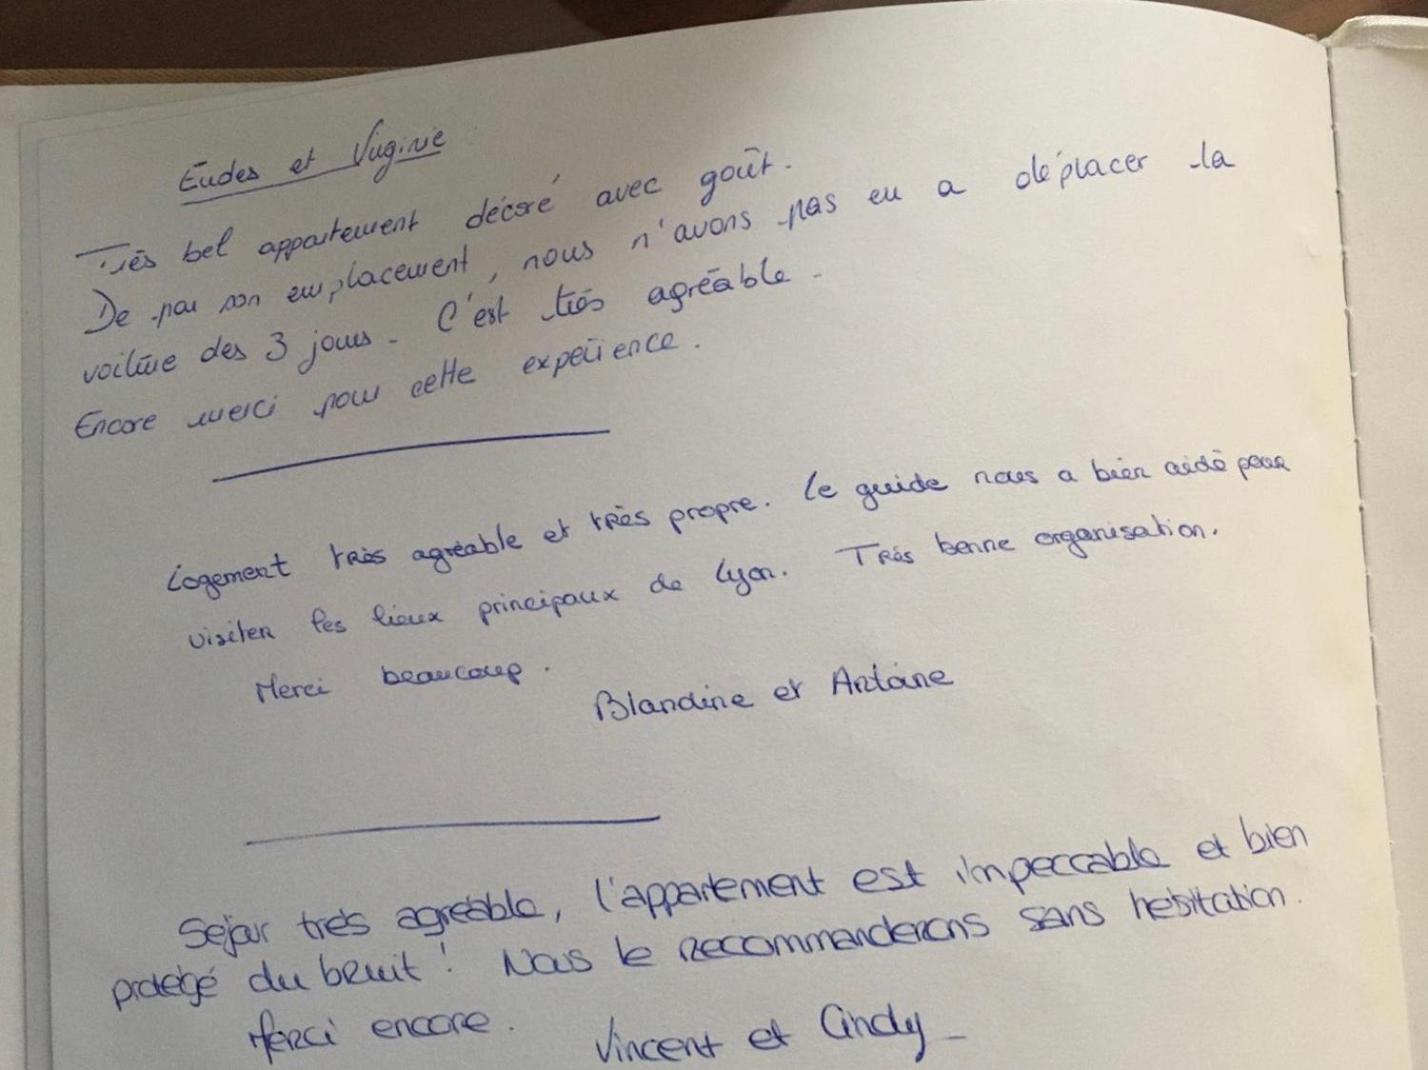 Eudes et Virginie
Très bel appartement décoré avec goût.
De par son emplacement, nous n'avons pas eu a déplacer la
voiture des 3 jours. C'est très agréable.
Encore merci pour cette expérience.
Logement très agréable et très propre. Le guide nous a bien aidé pour
visiter les lieux principaux de Lyon. Très bonne organisation.
Merci beaucoup.
Blandine et Antoine
Sejour très agréable, l'appartement est impeccable et bien
protégé du bruit ! Nous le recommanderons sans hésitation.
Merci encore.
Vincent et Cindy